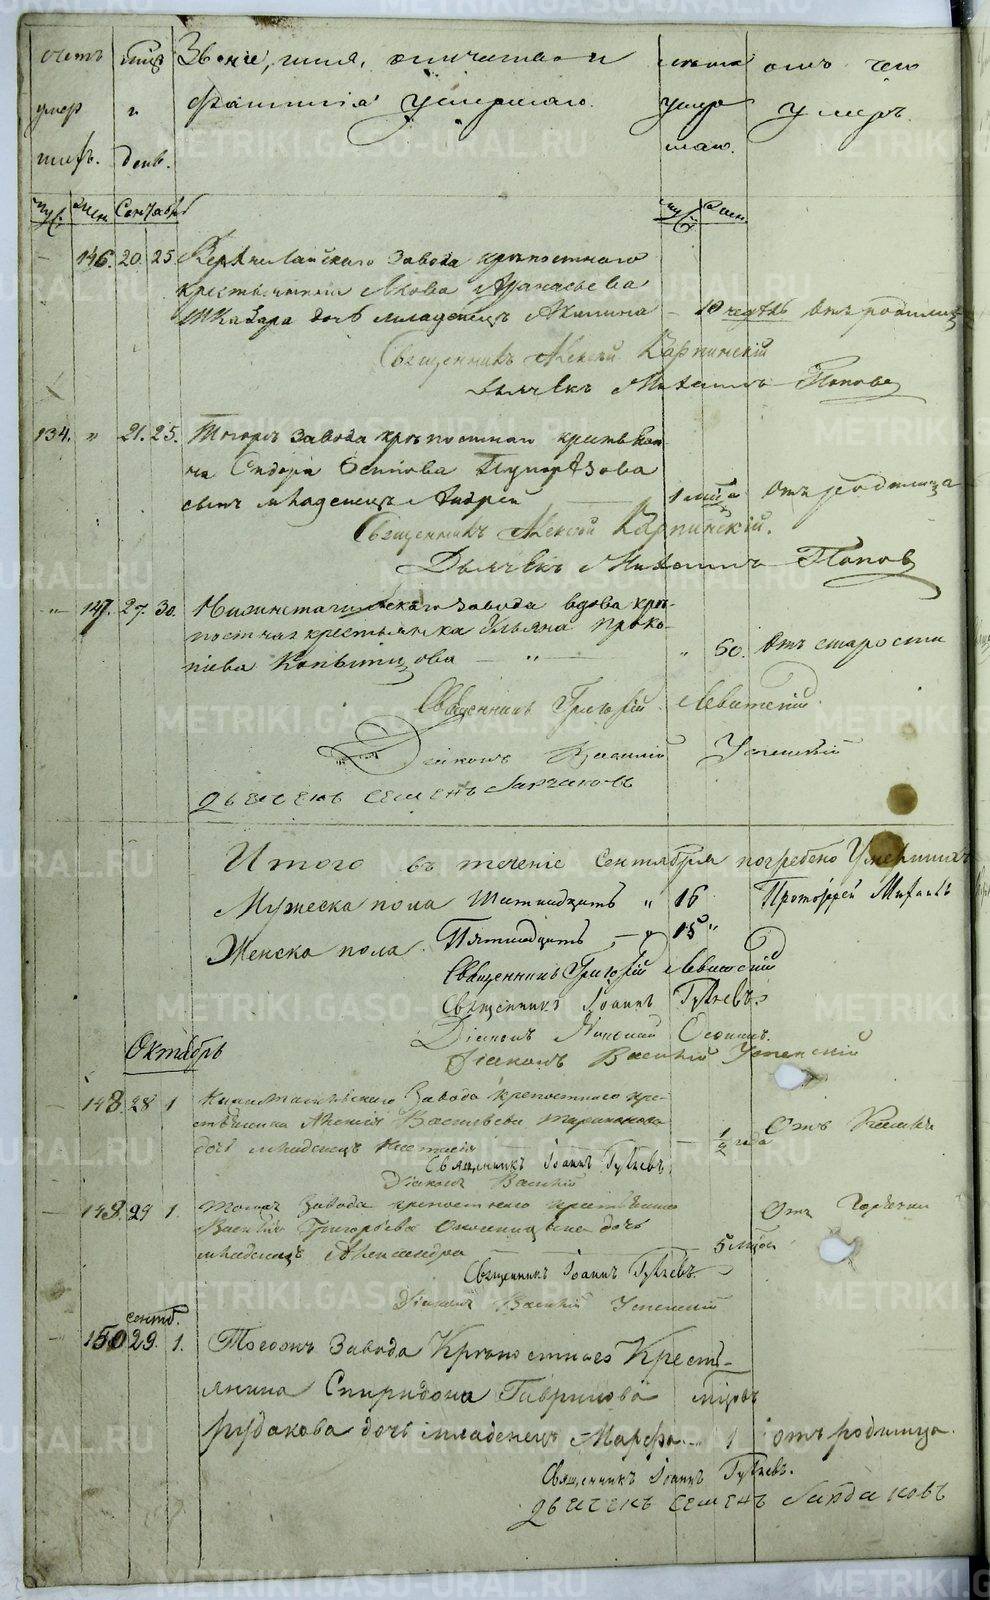 счетъ мѣсц Званіе, имя, отчество и лѣта отъ чего
умер и фамилія умершаго. умер умеръ.
шихъ. день. шаго.
муж. жен. Сентябрь муж. жен.
146. 20. 25 Верхнелайскаго завода крѣпостнаго
крестьянина Якова Афанасьева
дочь младенецъ Акилина отъ родимца
Священникъ Алексѣй Карпинскій
Дьячекъ Михаилъ Поповъ
134. " 21. 25. Тогоже завода крѣпостнаго крестьяни
на Сидора Осипова
сынъ младенецъ Андрей 1 отъ родимца
Священникъ Алексѣй Карпинскій.
Дьячекъ Михаилъ Поповъ
" 147. 27. 30. Нижнетагильскаго завода вдова крѣ-
постная крестьянка Ульяна Проко-
піева Копытцова " " 60. отъ старости
Священникъ Григорій Левитскій
Діаконъ Василій Успенскій
Дьячекъ Семенъ
Итого въ теченіе Сентября погребено Умершихъ
Мужеска пола Шестнадцать " 16 Протоіерей Михаилъ
Женска пола Пятнадцать " 15 "
Священникъ Григорій Левитскій
Священникъ Іоаннъ
Діаконъ
Діаконъ Василій Успенскій
Октябрь
148. 28 1 Нижнетагильскаго Завода крепостнаго кре-
стьянина Алексія Васильева
дочь младенецъ Анастасія 1/2 года Отъ Кашля
Священникъ Іоаннъ
Діаконъ Василій
149. 29 1. Тогоже Завода крепостнаго крестьянина
Василія Григорьева дочь Отъ Горячки
младенецъ Александра 5 мѣсяц.
Священникъ Іоаннъ
Діаконъ Василій Успенскій
сентб.
150 29. 1. Тогожъ Завода Крѣпостнаго Кресть-
янина Спиридона Гаврилова мѣсяцъ
Рудакова дочь младенецъ Марфа 1 отъ родимца.
Священникъ Іоаннъ
Дьячекъ Семенъ
METRIKI.GASO-URAL.RU